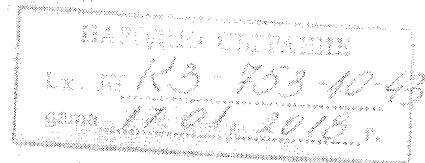 НАРОДНО СЪБРАНИЕ
Вх. № КЗ-753-10-43
дата 17.01.2018 г.